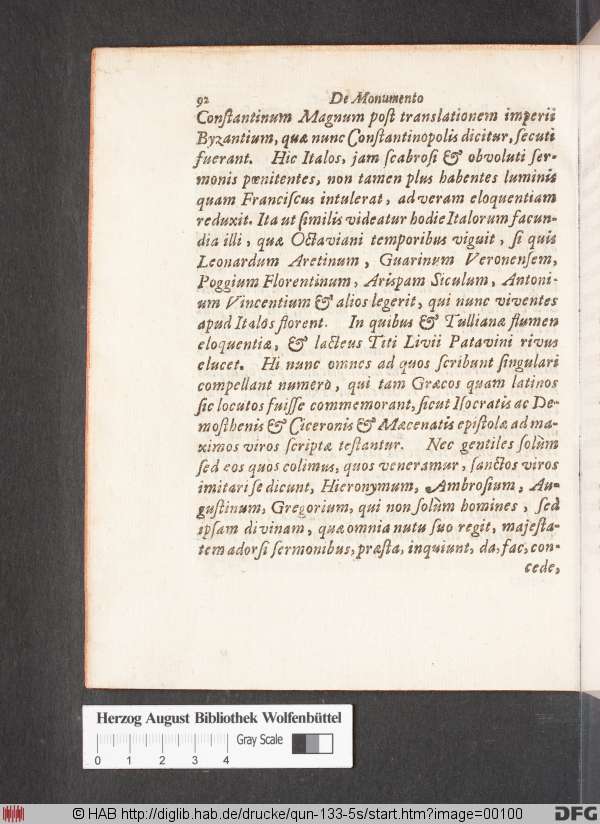 92 De Monumento
Conſtantinum Magnum poſt translationem imperii
Byzantium, quæ nunc Conſtantinopolis dicitur, ſecuti
fuerant. Hic Italos, jam ſcabroſi & obvoluti ſer-
monis pœnitentes, non tamen plus habentes luminis
quam Franciſcus intulerat, ad veram eloquentiam
reduxit. Ita ut ſimilis videatur hodie Italorum facun-
dia illi, quæ Octaviani temporibus viguit, ſi quis
Leonardum Aretinum, Guarinum Veronenſem,
Poggium Florentinum, Ariſpam Siculum, Antoni-
um Vincentium & alios legerit, qui nunc viventes
apud Italos florent. In quibus & Tullianæ flumen
eloquentiæ, & lacteus Titi Livii Patavini rivus
elucet. Hi nunc omnes ad quos ſcribunt ſingulari
compellant numero, qui tam Græcos quam latinos
ſic locutos fuiſſe commemorant, ſicut Iſocratis ac De-
moſthenis & Ciceronis & Mæcenatis epiſtolæ ad ma-
ximos viros ſcriptæ teſtantur. Nec gentiles ſolùm
ſed eos quos colimus, quos veneramur, ſanctos viros
imitari ſe dicunt, Hieronymum, Ambroſium, Au-
guſtinum, Gregorium, qui non ſolùm homines, ſed
ipſam divinam, quæ omnia nutu ſuo regit, majeſta-
tem adorſi ſermonibus, præſta, inquiunt, da, fac, con-
cede,
Herzog August Bibliothek Wolfenbüttel
Gray Scale
0 1 2 3 4
© HAB http://diglib.hab.de/drucke/qun-133-5s/start.htm?image=00100
DFG